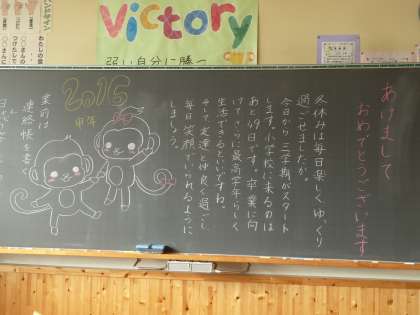 Victory
弱い自分に勝つ
あけまして
おめでとうございます
冬休みは毎日楽しく、ゆっくり
過ごせましたか。
今日から三学期がスタート
します。小学校に来るのは
あと49日です。卒業に向
けてさらに最高学年らしく
生活できるといいですね。
そして友達と仲良く過ごし
毎日笑顔でいられるように
しましょう。
2016
申年
業前は
連絡帳を書く